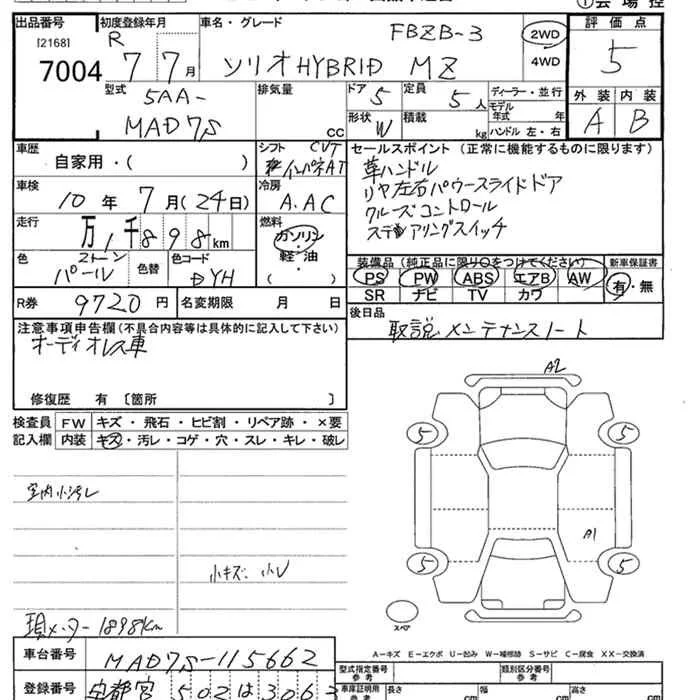 ① 会場控
出品番号 初度登録年月 車名・グレード 評価点
[2168] R FBZB-3 2WD
7004 7 7月 ソリオHYBRID MZ 4WD 5
型式 排気量 ドア 5 定員 5人 ディーラー・並行 外装 内装
5AA- モデル年式 年
MAD7S cc 形状 W 積載 kg ハンドル 左・右 A B
車歴 シフト CVT セールスポイント(正常に機能するものに限ります)
自家用・( ) インパネAT 革ハンドル
車検 10年 7月(24日) 冷房 リヤ左右パワースライドドア
A.AC クルーズコントロール
走行 万1千898km 燃料 ステアリングスイッチ
ガソリン
軽油・
( )
色 2トーン 色替 色コード 装備品(純正品に限り○をつけてください) 新車保証書
パール DYH PS PW ABS エアB AW 有・無
SR ナビ TV カワ
R券 9720円 名変期限 月 日 後日品
取説 メンテナンスノート
注意事項申告欄(不具合内容等は具体的に記入して下さい)
オーディオレス車
修復歴 有 〔箇所 〕
検査員 FW キズ・飛石・ヒビ割・リペア跡・×要
記入欄 内装 キズ・汚レ・コゲ・穴・スレ・キレ・破レ
A2
5 5
室内小汚レ
A1
小キズ、
5 5
現メーター 1898km
スペア
A-キズ E-エクボ U-凹み W-補修跡 S-サビ C-腐食 XX-交換済
車台番号 MAD7S-115662
型式指定番号 参考 類別区分番号 参考
登録番号 宇都宮 502 は 3063
車庫証明用 参考 長さ cm 幅 cm 高さ cm